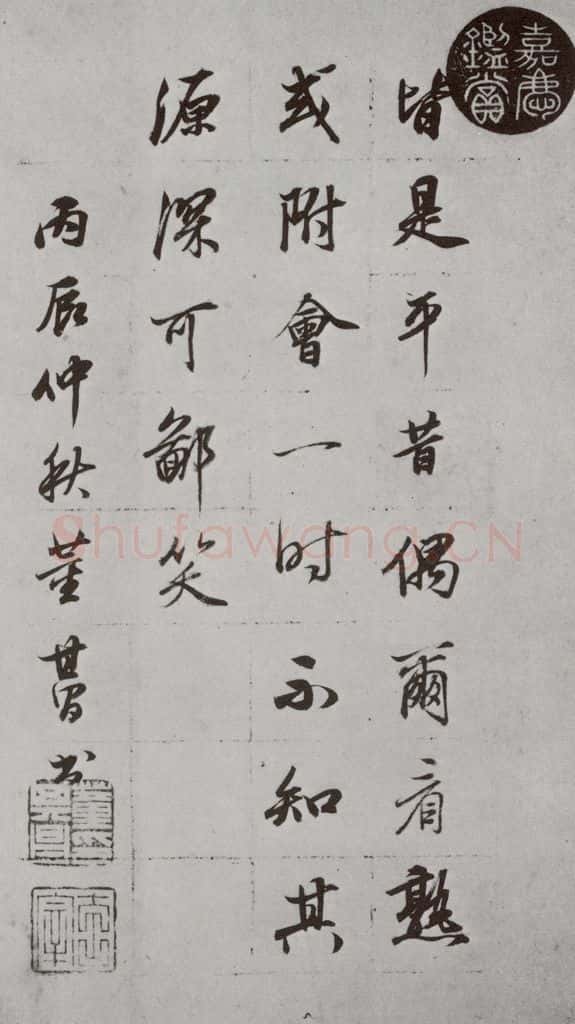 皆是平昔偶爾看熟
或附會一时不知其
源深可鄙笑
丙辰仲秋董其昌书
嘉慶鑑賞
Shufawang.CN